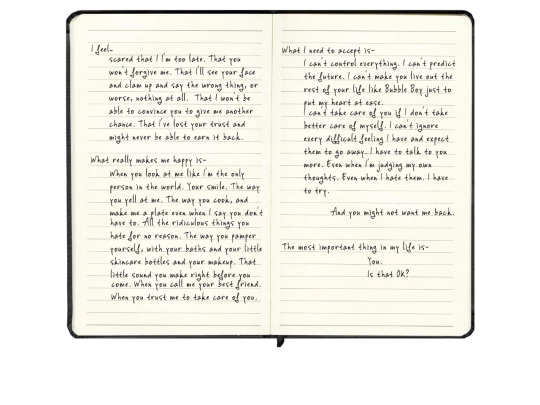 I feel-
scared that I I'm too late. That you
won't forgive me. That I'll see your face
and clam up and say the wrong thing, or
worse, nothing at all. That I won't be
able to convince you to give me another
chance. That I've lost your trust and
might never be able to earn it back.
What really makes me happy is-
When you look at me like I'm the only
person in the world. Your smile. The way
you yell at me. The way you cook, and
make me a plate even when I say you don't
have to. All the ridiculous things you
hate for no reason. The way you pamper
yourself, with your baths and your little
skincare bottles and your makeup. That
little sound you make right before you
come. When you call me your best friend.
When you trust me to take care of you.
What I need to accept is-
I can't control everything. I can't predict
the future. I can't make you live out the
rest of your life like Bubble Boy just to
put my heart at ease.
I can't take care of you if I don't take
better care of myself. I can't ignore
every difficult feeling I have and expect
them to go away. I have to talk to you
more. Even when I'm judging my own
thoughts. Even when I hate them. I have
to try.
And you might not want me back.
The most important thing in my life is-
You.
Is that OK?